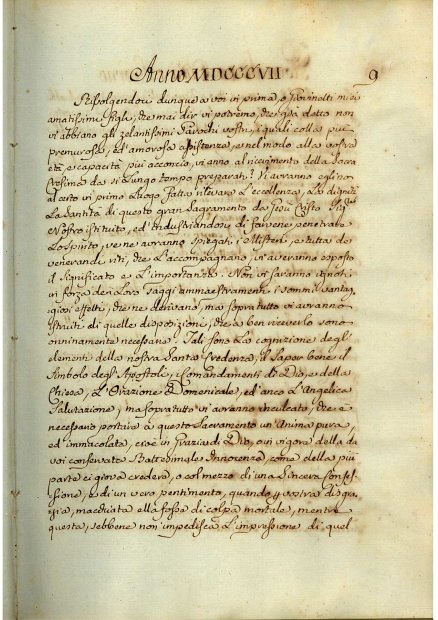 Anno MDCCCVII
9
Rivolgendoci dunque a voi in prima, o Giovinetti miei
amatissimi Figli, che mai dir vi potremo, che già detto non
vi abbiano gli zelantissimi Parochi vostri, i quali colla più
premurosa, ed amorosa assistenza, e nel modo alla vostra
età, e capacità più acconcio, vi anno al ricevimento della Sacra
Cresima da sì lungo tempo preparati? Vi avranno eglino
al certo in primo Luogo fatta rilevare L'eccellenza, La dignità
La Santità di questo gran Sagramento da Gesù Cristo Sig.r
Nostro istituito, ed industriandosi di farvene penetrare
Lo Spirito, ve ne avranno spiegati i Misterj, e tutta de
venerandi riti, che L'accompagnano, vi averanno esposto
il significato e L'importanza. Non vi saranno ignoti
in forza de' Loro saggi ammaestramenti, i sommi vantag-
giosi effetti, che ne derivano, ma sopra tutto vi avranno
istruiti di quelle disposizioni, che a ben riceverlo sono
onninamente necessarie. Tali sono La cognizione degl'
elementi della nostra Santa Credenza, il saper bene il
Simbolo degl'Apostoli, i Comandamenti di Dio, e della
Chiesa, L'Orazione Domenicale, ed anco L'Angelica
Salutazione; ma sopra tutto vi avranno inculcato, che è
necessario portare a questo Sacramento un'Anima pura,
ed immacolata, cioè in Grazia di Dio, o in vigore della da
voi conservata Battesimale Innocenza, come della più
parte ci giova credere, o col mezzo di una sincera Confes-
sione, e di un vero pentimento, quando per vostra disgra-
zia, macchiata ella fosse di colpa mortale, mentre
questa, sebbene non impedisca L'impressione di quel